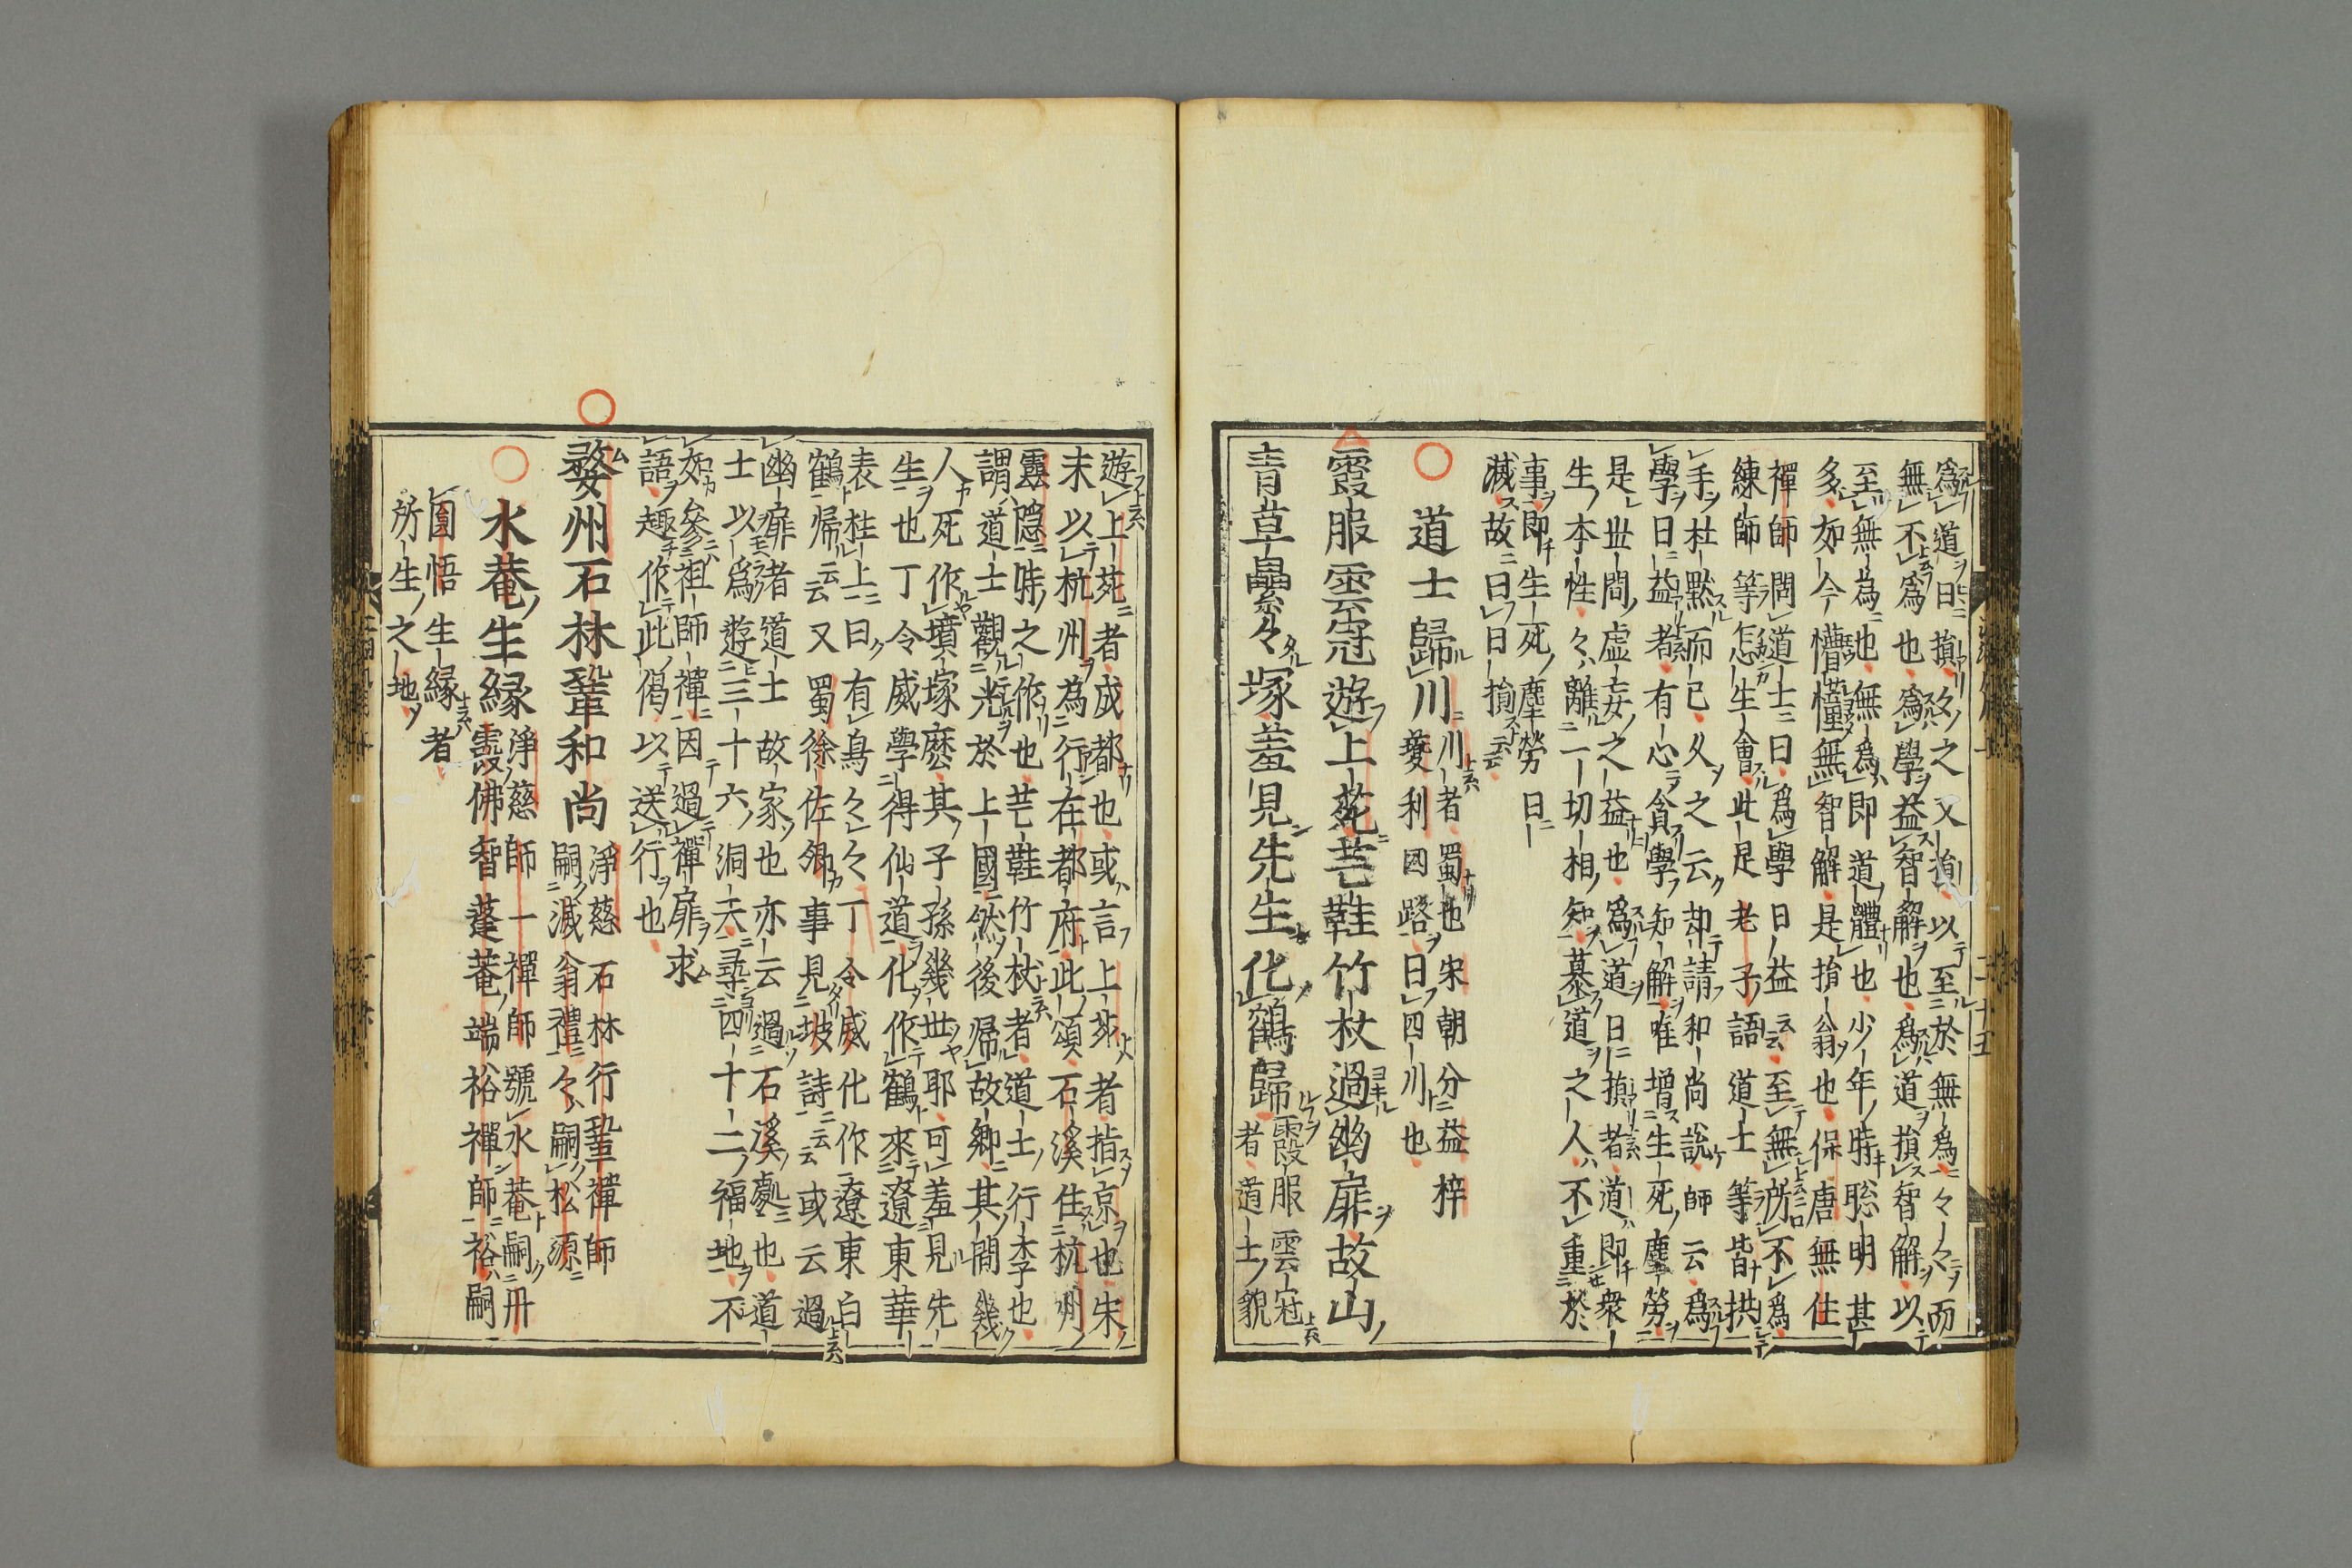 爲道日損々之又損以至於無爲々々而
無不爲也爲學益智解也爲道損智解以
至無爲也無爲即道體也少年時聡明甚
多如今懵懂無智解是損翁也保唐無住
禪師問道士曰爲學日益云至無所不爲
練師等怎生會此是老子語道士等皆拱
手杜默而已久之云却請和尚說師云爲
學日益者有心貪學知解唯增生死塵勞
是世間虛妄之益也爲道日損者道即衆
生本性々離一切相知慕道之人不重於
事即生死塵勞日
滅故曰日損云
道士歸川 川者蜀也宋朝分益梓
夔利四路曰四川也
霞服雲冠遊上苑芒鞋竹杖過幽扉故山
青草纍々塚羞見先生化鶴歸 霞服雲冠
者道士貌
遊上苑者成都也或言上苑者指京也宋
末以杭州為行在都府此頌石溪住杭州
靈隱時之作也芒鞋竹杖者道士行李也
謂道士觀光於上國然後帰故卿其間幾
人死作墳塚麽其子孫幾世耶可羞見先
生也丁令威學得仙道化作鶴來遼東華
表柱上曰有鳥々々丁令威化作遼東白
鶴帰云又蜀徐佐卿事見坡詩云或云過
幽扉者道士故家也亦云過石溪處也道
士以爲遊三十六洞天尋四十二福地不
如參祖師禪因過禪扉求
語趣作此偈以送行也
婺州石林鞏和尚 淨慈石林行鞏禪師
嗣滅翁禮々嗣松源
水菴生縁 淨慈師一禪師號水菴嗣月
震佛智蓬菴端裕禪師裕嗣
圓悟生縁者
所生之地